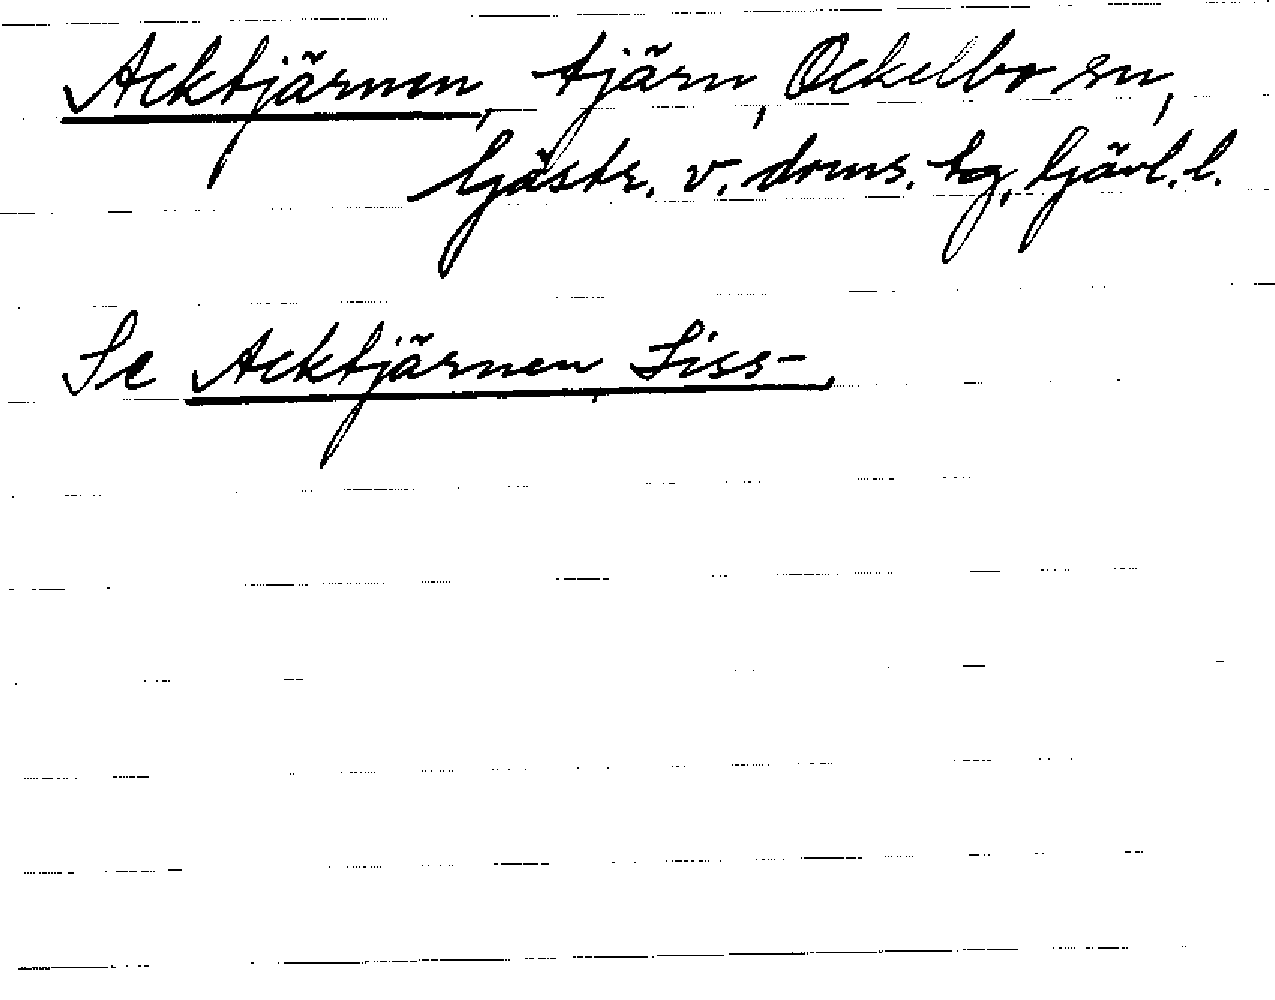 Acktjärnen, tjärn, Ockelbo sn,
Gästr. v. doms. tg, Gävl. l.
Se Acktjärnen, Liss-,